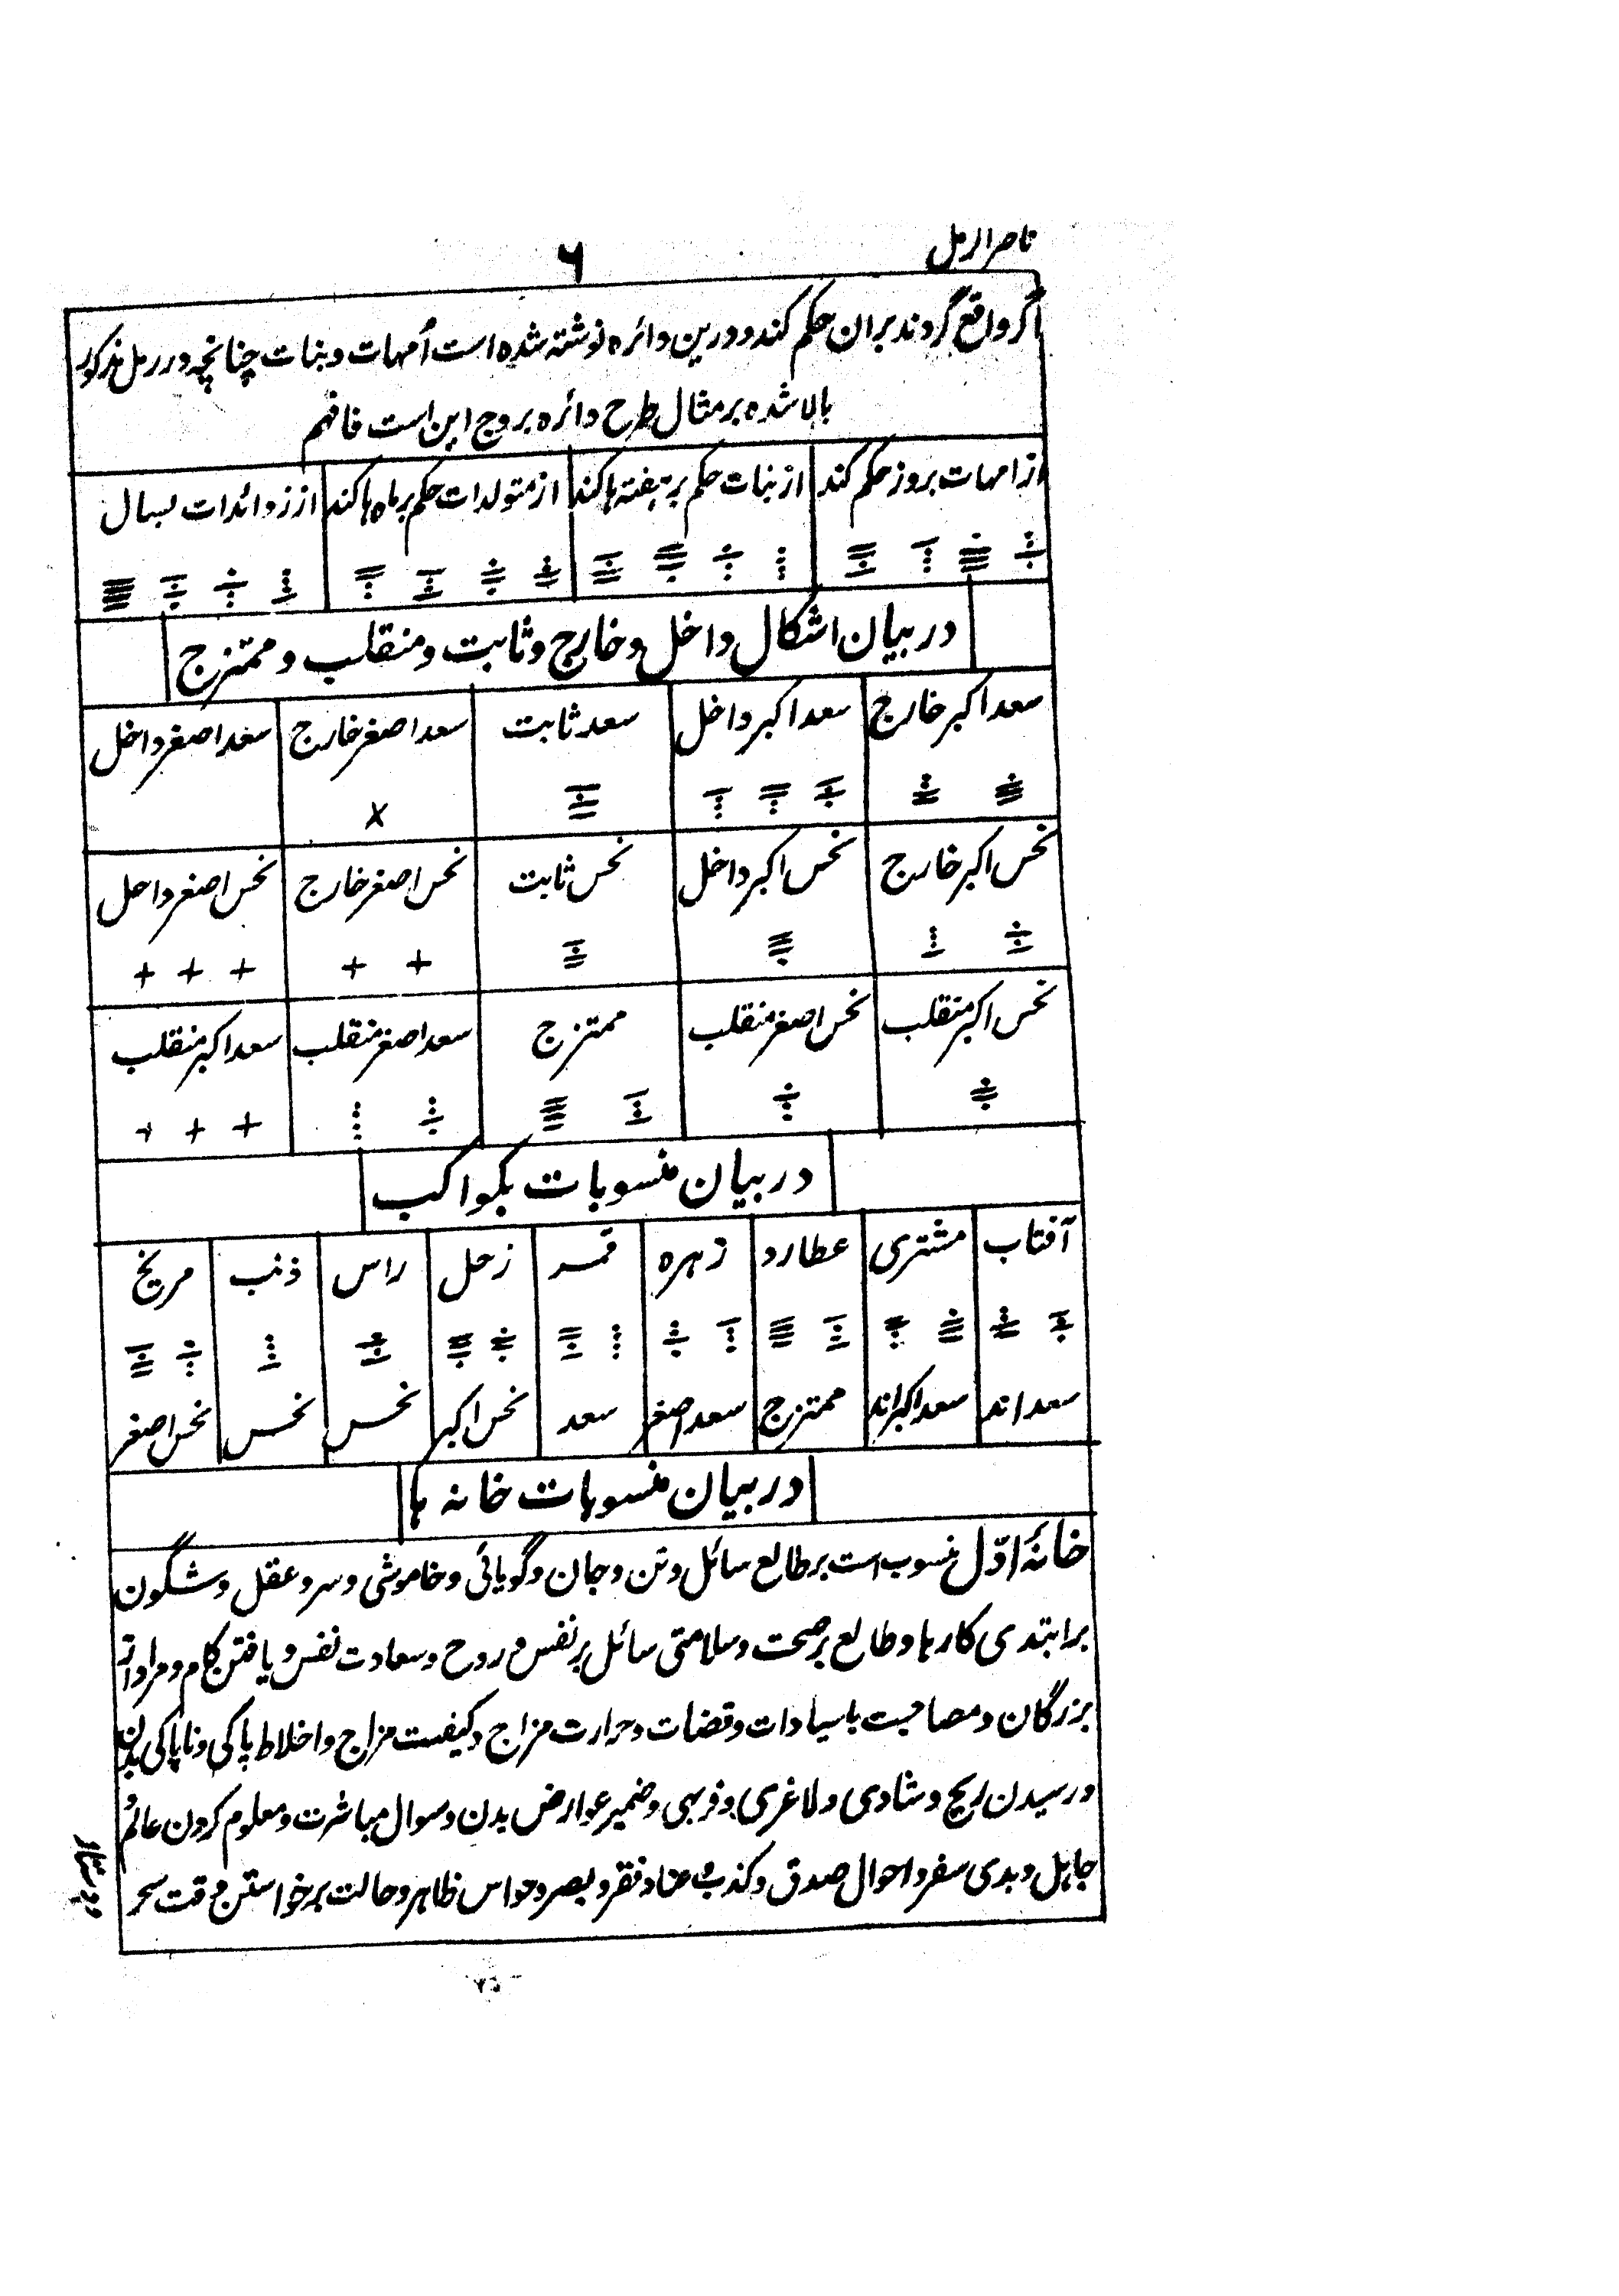 ناصر الرمل
۶
اگر واقع گردند بران حکم کند و درین دائره نوشته شده است اُمهات و بنات چنانچه در رمل مذکور
بالا شده بر مثال طرح دائره بروج این است فافهم
از امهات بروز حکم کند | از بنات حکم بر ہفتہ ہا کند | از متولدات حکم بر ماہ ہا کند | از زوائدات بسال
در بیان اشکال داخل و خارج و ثابت و منقلب و ممتزج
سعد اکبر خارج | سعد اکبر داخل | سعد ثابت | سعد اصغر خارج | سعد اصغر داخل
×
نحس اکبر خارج | نحس اکبر داخل | نحس ثابت | نحس اصغر خارج | نحس اصغر داحل
+ + | + + +
نحس اکبر منقلب | نحس اصغر منقلب | ممتزج | سعد اصغر منقلب | سعد اکبر منقلب
+ + +
در بیان منسوبات بکواکب
آفتاب | مشتری | عطارد | زہرہ | قمر | زحل | راس | ذنب | مریخ
سعد اند | سعد اکبر اند | ممتزج | سعد اصغر | سعد | نحس اکبر | نحس | نحس | نحس اصغر
در بیان منسوبات خانہ ہا
خانۂ اوّل منسوب است بر طالع سائل و تن و جان و گویائی و خاموشی و سر و عقل و شگون
برابتدی کارہا و طالع بر صحت و سلامتی سائل بر نفس و روح و سعادت نفس و یافتن کام و مراد از
بزرگان و مصاحبت با سیادات و قضات و حرارت مزاج و کیفیت مزاج و اخلاط پاکی و ناپاکی بدن
و رسیدن رنج و شادی و لاغری و فربہی و ضمیر عوارض بدن و سوال مباشرت و معلوم کردن عالم
جاہل و بدی سفر و احوال صدق و کذب و فقر و بصر و حواس ظاہر و حالت برخواستن وقت سحر